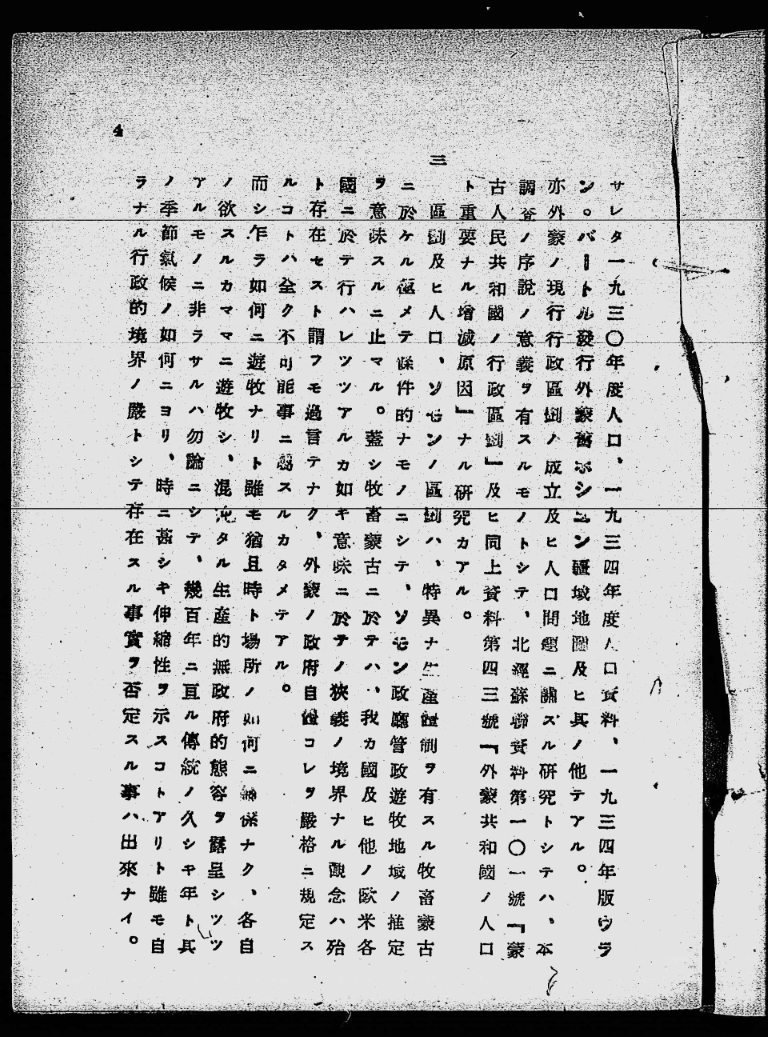 サレタ一九三〇年度人口、一九三四年度人口資料、一九三四年版ウラ
ン。バートル發行外蒙舊ホシユン疆域地圖及ヒ其ノ他テアル。
亦外蒙ノ現行行政區劃ノ成立及ヒ人口問題ニ關スル研究トシテハ、本
調査ノ序説ノ意義ヲ有スルモノトシテ、北經蘇聯資料第一〇一號『蒙
古人民共和國ノ行政區劃』及ヒ同上資料第四三號『外蒙共和國ノ人口
ト重要ナル增減原因』ナル研究カアル。
三
區劃及ヒ人口、ソモンノ區劃ハ、特異ナ生產體制ヲ有スル牧畜蒙古
ニ於ケル極メテ條件的ナモノニシテ、ソモン政廳管政遊牧地域ノ推定
ヲ意味スルニ止マル。蓋シ牧畜蒙古ニ於テハ、我カ國及ヒ他ノ歐米各
國ニ於テ行ハレツツアルカ如キ意味ニ於テノ狹義ノ境界ナル觀念ハ殆
ト存在セスト謂フモ過言テナク、外蒙ノ政府自體コレヲ嚴格ニ規定ス
ルコトハ全ク不可能事ニ屬スルカタメテアル。
而シ乍ラ如何ニ遊牧ナリト雖モ猶且時ト場所ノ如何ニ關係ナク、各自
ノ欲スルカママニ遊牧シ、混沌タル生產的無政府的態容ヲ露呈シツツ
アルモノニ非ラサルハ勿論ニシテ、幾百年ニ亘ル傳統ノ久シキ年ト其
ノ季節氣候ノ如何ニヨリ、時ニ甚シキ伸縮性ヲ示スコトアリト雖モ自
ラナル行政的境界ノ嚴トシテ存在スル事實ヲ否定スル事ハ出來ナイ。
4